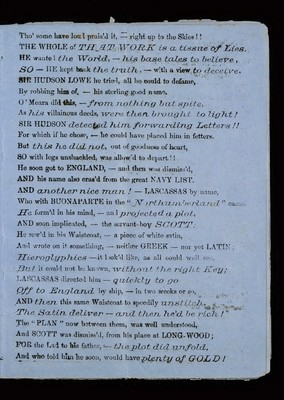 Tho' some have loud prais'd it, — right up to the Skies!!
THE WHOLE of THAT WORK is a tissue of Lies.
HE wanted the World, — his base tales to believe,
SO — HE kept back the truth, — with a view to deceive.
SIR HUDSON LOWE he tried, all he could to defame,
By robbing him of, — his sterling good name.
O'Meara did this, — from nothing but spite,
As his villainous deeds, were then brought to light!
SIR HUDSON detected him forwarding Letters!!
For which if he chose, — he could have placed him in fetters.
But this he did not, out of goodness of heart,
SO with legs unshackled, was allow'd to depart!!
He soon got to ENGLAND, — and then was dismiss'd,
AND his name also eras'd from the great NAVY LIST.
AND another nice man! — LASCASSAS by name,
Who with BUONAPARTE in the "Northumberland" came
He form'd in his mind, — and projected a plot,
AND soon implicated, — the servant-boy SCOTT.
He sew'd in his Waistcoat, — a piece of white satin,
And wrote on it something, — neither GREEK — nor yet LATIN;
Hieroglyphics — it look'd like, as all could well see,
But it could not be known, without the right Key;
LASCASSAS directed him — quickly to go
Off to England by ship, — in two weeks or so,
AND then this same Waistcoat to speedily unstitch,
The Satin deliver — and then he'd be rich!
The "PLAN" now between them, was well understood,
And SCOTT was dismiss'd, from his place at LONG-WOOD;
FOR the Lad to his father, — the plot did unfold,
And who told him he soon, would have plenty of GOLD!